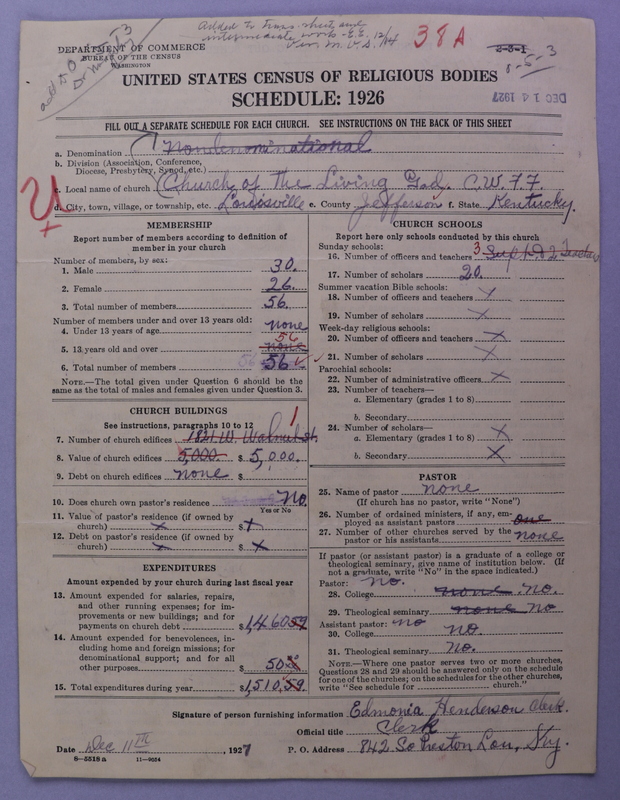 Added to trans. sheet and
intermediate work - E.E. 12/
38A
2-3-1
8-5-3
add to O
DEPARTMENT OF COMMERCE
BUREAU OF THE CENSUS
WASHINGTON
UNITED STATES CENSUS OF RELIGIOUS BODIES
SCHEDULE: 1926
DEC 14 1927
FILL OUT A SEPARATE SCHEDULE FOR EACH CHURCH. SEE INSTRUCTIONS ON THE BACK OF THIS SHEET
a. Denomination Nondenominational
b. Division (Association, Conference, Diocese, Presbytery, Synod, etc.)
c. Local name of church Church of the Living God. C.W.F.F.
d. City, town, village, or township, etc. Louisville e. County Jefferson f. State Kentucky.
MEMBERSHIP
Report number of members according to definition of member in your church
Number of members, by sex:
1. Male 30.
2. Female 26.
3. Total number of members 56
Number of members under and over 13 years old:
4. Under 13 years of age none
5. 13 years old and over none 56
6. Total number of members 56 56
NOTE.—The total given under Question 6 should be the same as the total of males and females given under Question 3.
CHURCH BUILDINGS
See instructions, paragraphs 10 to 12
7. Number of church edifices 1821 W. Walnut st. 1
8. Value of church edifices 5,000. $ 5,000.
9. Debt on church edifices none $
10. Does church own pastor's residence No.
Yes or No
11. Value of pastor's residence (if owned by church) x $ x
12. Debt on pastor's residence (if owned by church) x $ x
EXPENDITURES
Amount expended by your church during last fiscal year
13. Amount expended for salaries, repairs, and other running expenses; for improvements or new buildings; and for payments on church debt $1,460.59
14. Amount expended for benevolences, including home and foreign missions; for denominational support; and for all other purposes $ 50.
15. Total expenditures during year $1,510.59.
CHURCH SCHOOLS
Report here only schools conducted by this church
Sunday schools:
16. Number of officers and teachers 3 Supt. & 2 Teachers
17. Number of scholars 20.
Summer vacation Bible schools:
18. Number of officers and teachers x
19. Number of scholars x
Week-day religious schools:
20. Number of officers and teachers x
21. Number of scholars x
Parochial schools:
22. Number of administrative officers x
23. Number of teachers—
a. Elementary (grades 1 to 8)
b. Secondary
24. Number of scholars—
a. Elementary (grades 1 to 8) x
b. Secondary x
PASTOR
25. Name of pastor none
(If church has no pastor, write "None")
26. Number of ordained ministers, if any, employed as assistant pastors one
27. Number of other churches served by the pastor or his assistants none
If pastor (or assistant pastor) is a graduate of a college or theological seminary, give name of institution below. (If not a graduate, write "No" in the space indicated.)
Pastor: no.
28. College none. No.
29. Theological seminary none No
Assistant pastor: no
30. College no.
31. Theological seminary No.
NOTE.—Where one pastor serves two or more churches, Questions 28 and 29 should be answered only on the schedule for one of the churches; on the schedules for the other churches, write "See schedule for ........ church."
Signature of person furnishing information Edmonia Henderson Clerk.
Official title Clerk
Date Dec 11th, 1927 P. O. Address 842 So Preston Lou, Ky.
8—5518 a 11—9024